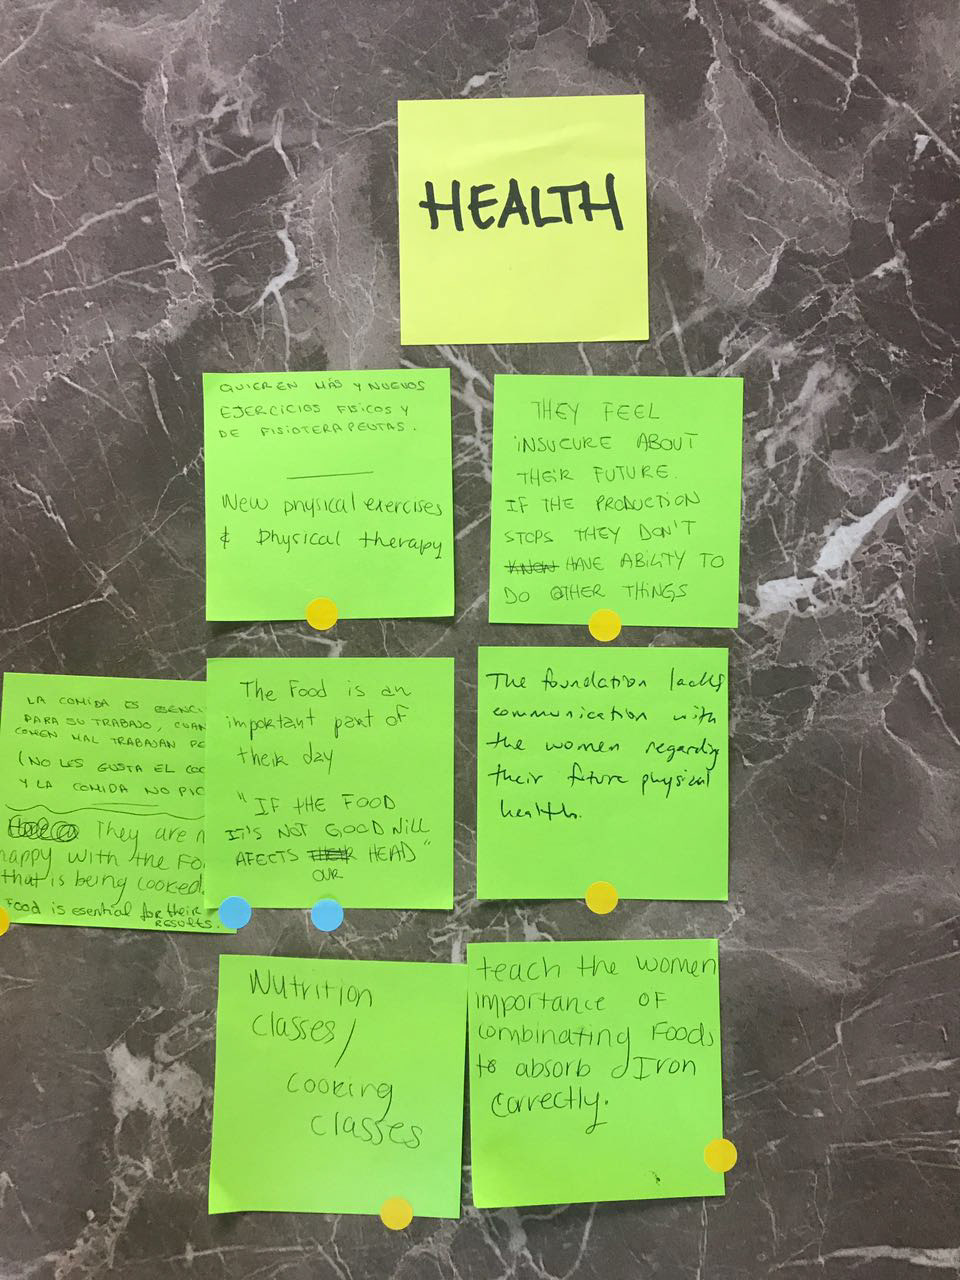 HEALTH
QUIEREN MÁS Y NUEVOS
EJERCICIOS FISICOS Y
DE FISIOTERAPEUTAS.
New physical exercises
& Physical therapy
THEY FEEL
INSUCURE ABOUT
THEIR FUTURE.
IF THE PRODUCTION
STOPS THEY DON'T
KNOW HAVE ABILITY TO
DO OTHER THINGS
LA COMIDA ES ESENCI
PARA SU TRABAJO, CUAN
COMEN MAL TRABAJAN PE
(NO LES GUSTA EL COC
Y LA COMIDA NO PIC
They are n
happy with the Fo
that is being cooked.
Food is esential for their
RESULTS.
The Food is an
important part of
their day
"IF THE FOOD
IT'S NOT GOOD WILL
AFECTS THEIR HEAD"
OUR
The foundation lacks
communication with
the women regarding
their future physical
health.
Nutrition
classes/
cooking
classes
teach the women
importance OF
combinating Foods
to absorb Iron
correctly.